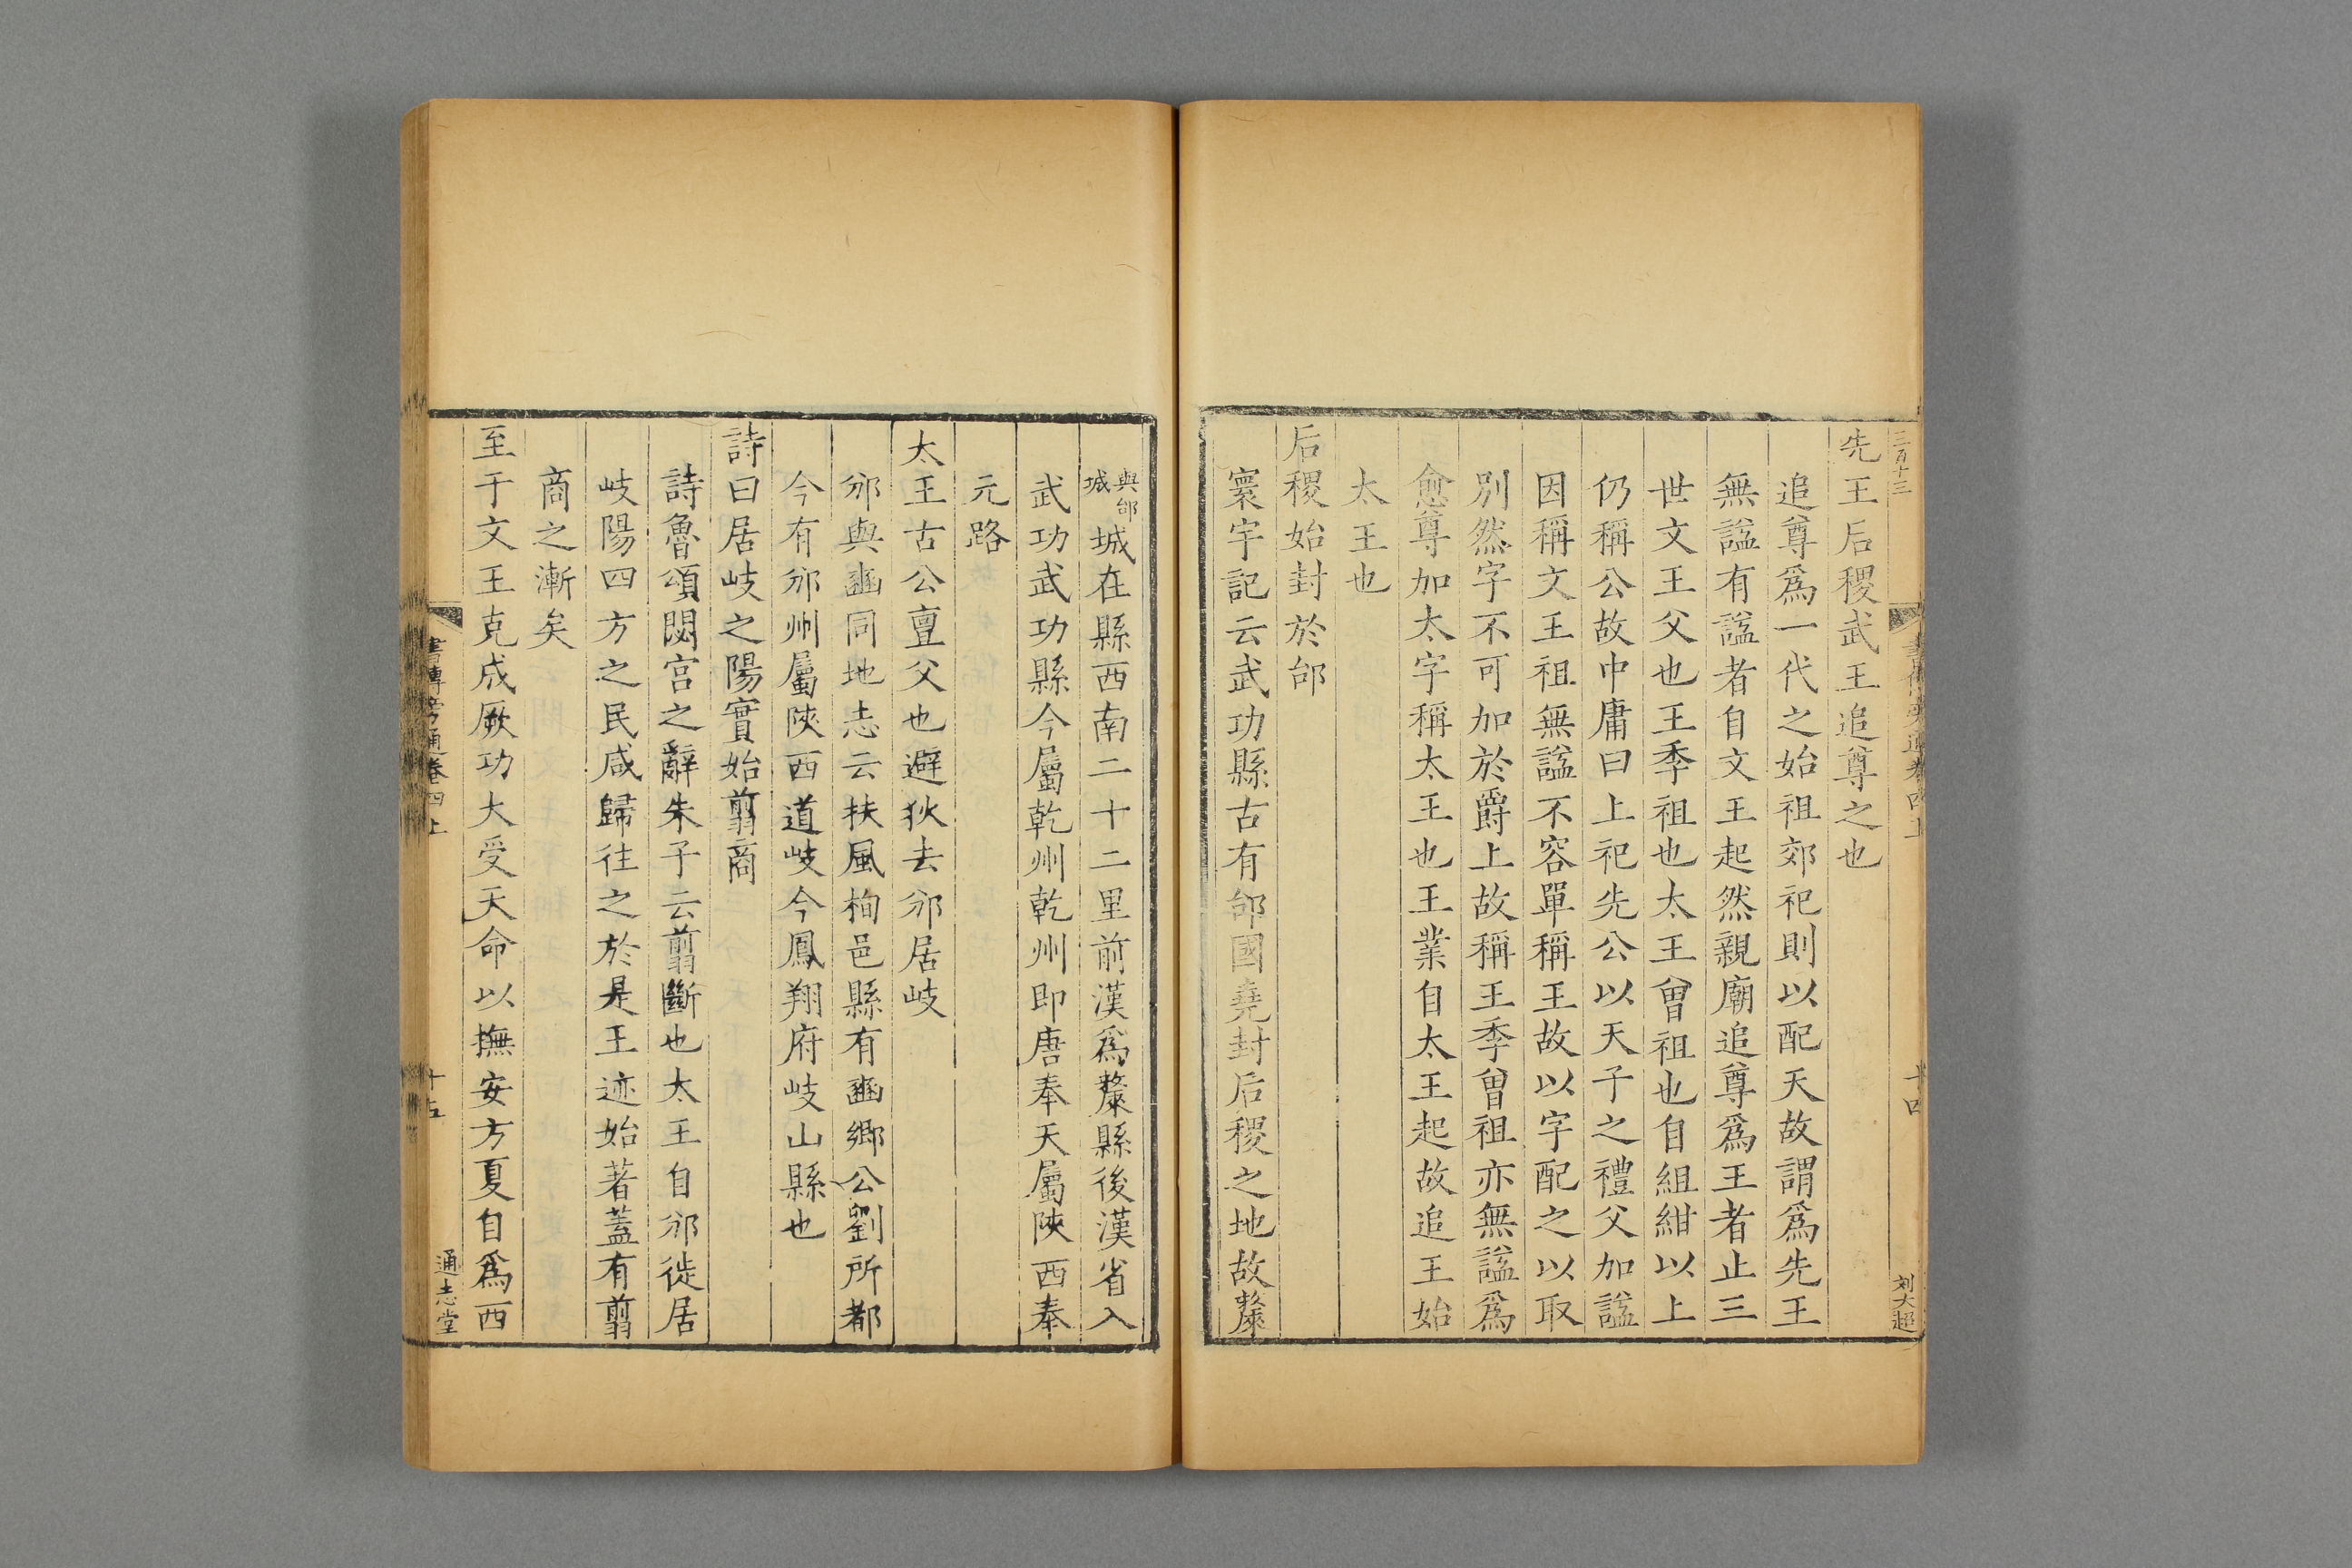 三百十三
先王后稷武王追尊之也
追尊爲一代之始祖郊祀則以配天故謂爲先王
無諡有諡者自文王起然親廟追尊爲王者止三
世文王父也王季祖也太王曾祖也自組紺以上
仍稱公故中庸曰上祀先公以天子之禮父加諡
因稱文王祖無諡不容單稱王故以字配之以取
別然字不可加於爵上故稱王季曾祖亦無諡爲
愈尊加太字稱太王也王業自太王起故追王始
太王也
后稷始封於邰
寰宇記云武功縣古有邰國堯封后稷之地故斄
十四
刘大超
城與邰城在縣西南二十二里前漢爲斄縣後漢省入
武功武功縣今屬乾州乾州即唐奉天屬陝西奉
元路
太王古公亶父也避狄去邠居岐
邠與豳同地志云扶風栒邑縣有豳鄉公劉所都
今有邠州屬陝西道岐今鳳翔府岐山縣也
詩曰居岐之陽實始翦商
詩魯頌閟宮之辭朱子云翦斷也太王自邠徙居
岐陽四方之民咸歸往之於是王迹始著蓋有翦
商之漸矣
至于文王克成厥功大受天命以撫安方夏自爲西
書傳旁通卷四上
十五
通志堂